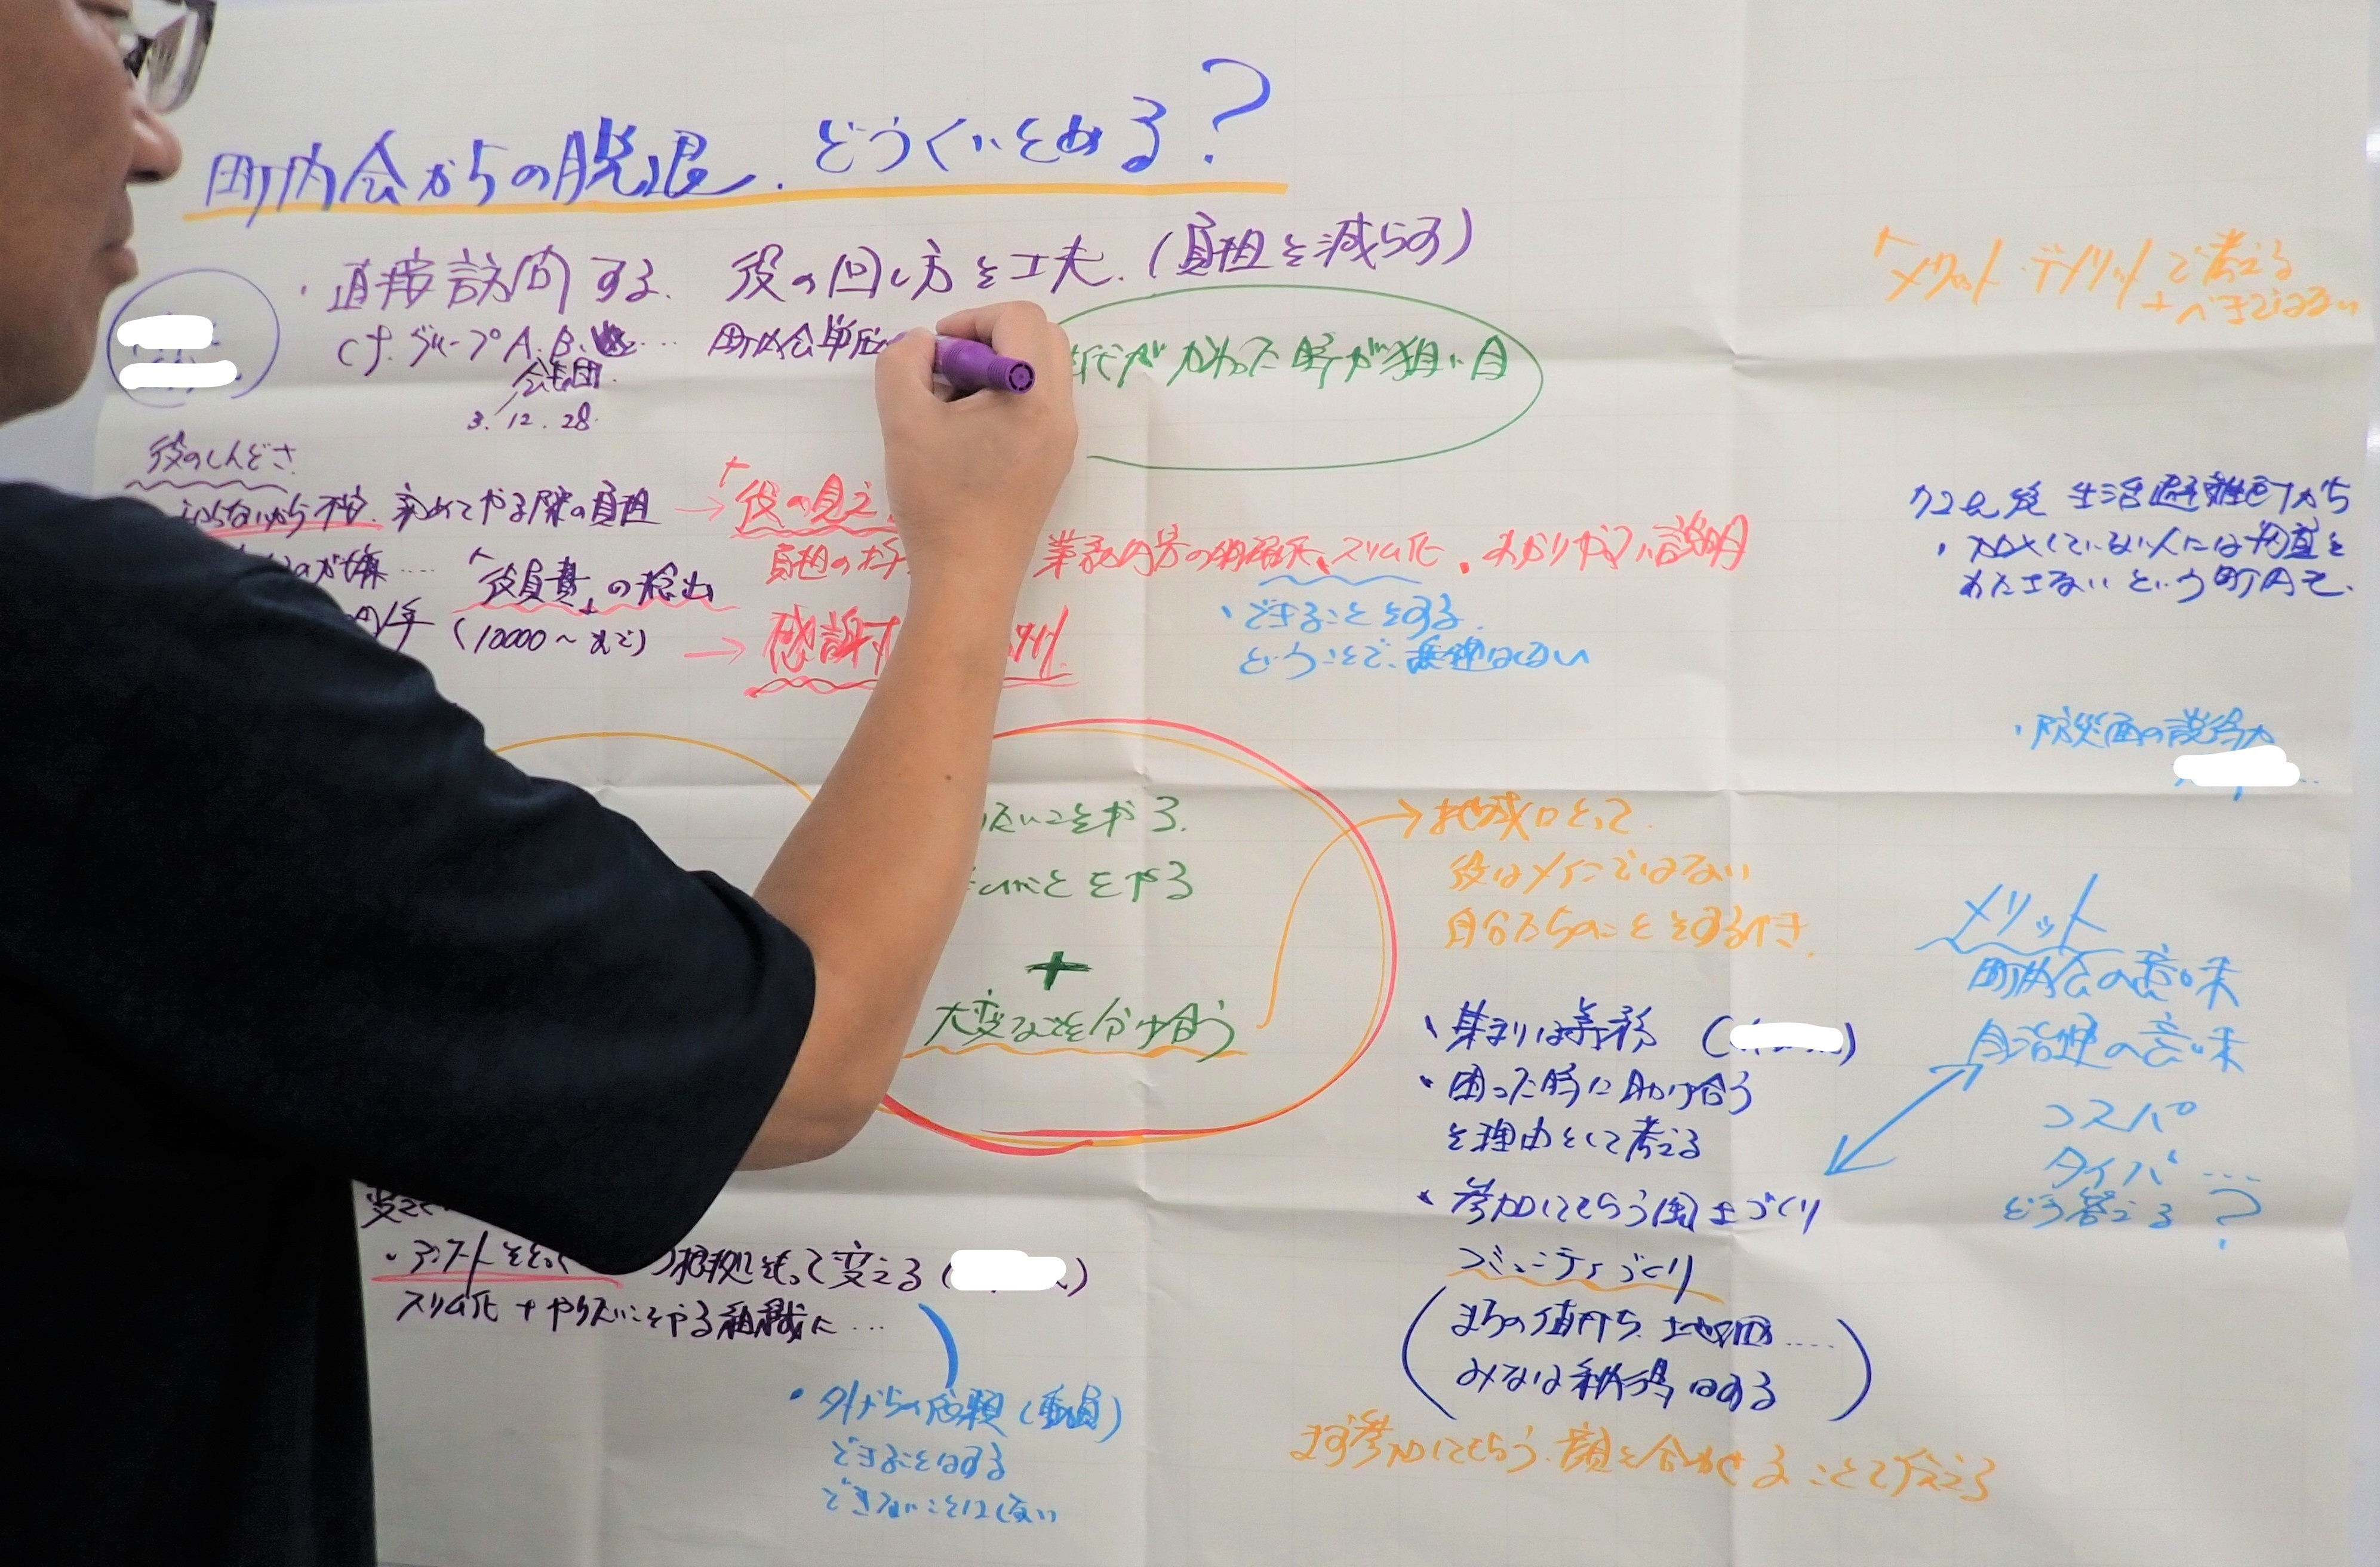 町内会からの脱退.どうくいとめる?
・直接訪問する. 役の回し方を工夫.(負担を減らす)
グループA.B. 町内会単位
会議(団)
3. 12. 28.
代がかわった時が狙い目
「メリット・デメリットで考える
べきではない
役のしんどさ
らないから不安. 初めてやる際の負担 →「役の見え
負担の 業務内容の明確化、スリム化. わかりやすい説明
が嫌…… 「役員費」の捻出
円/年 (10000〜まで) → 感謝
・できることをする.
ということで、無理はない
生活避難町から
・加入していない人には物資を
わたさないという町内も.
・防災面の説得力
たいことをやる.
ことをやる
+
大変なことを分け合う
→ 地域にとって
役はメインではない
自分たちのことをするべき.
メリット
町内会の意味
自治連の意味
コスパ
タイパ……
どう答える?
・集まりは義務 ( )
・困った時に助け合う
を理由として考える
・参加してもらう風土づくり
コミュニティづくり
まちの値打ち. 土地の価……
みなは納得はする
まず参加してもらう. 顔を合わせることで伝える
変えて
・アンケートをとって 根拠をもって変える ( )
スリム化+やりたいことをやる組織に…
・外からの依頼(動員)
できることはする
できないことはしない